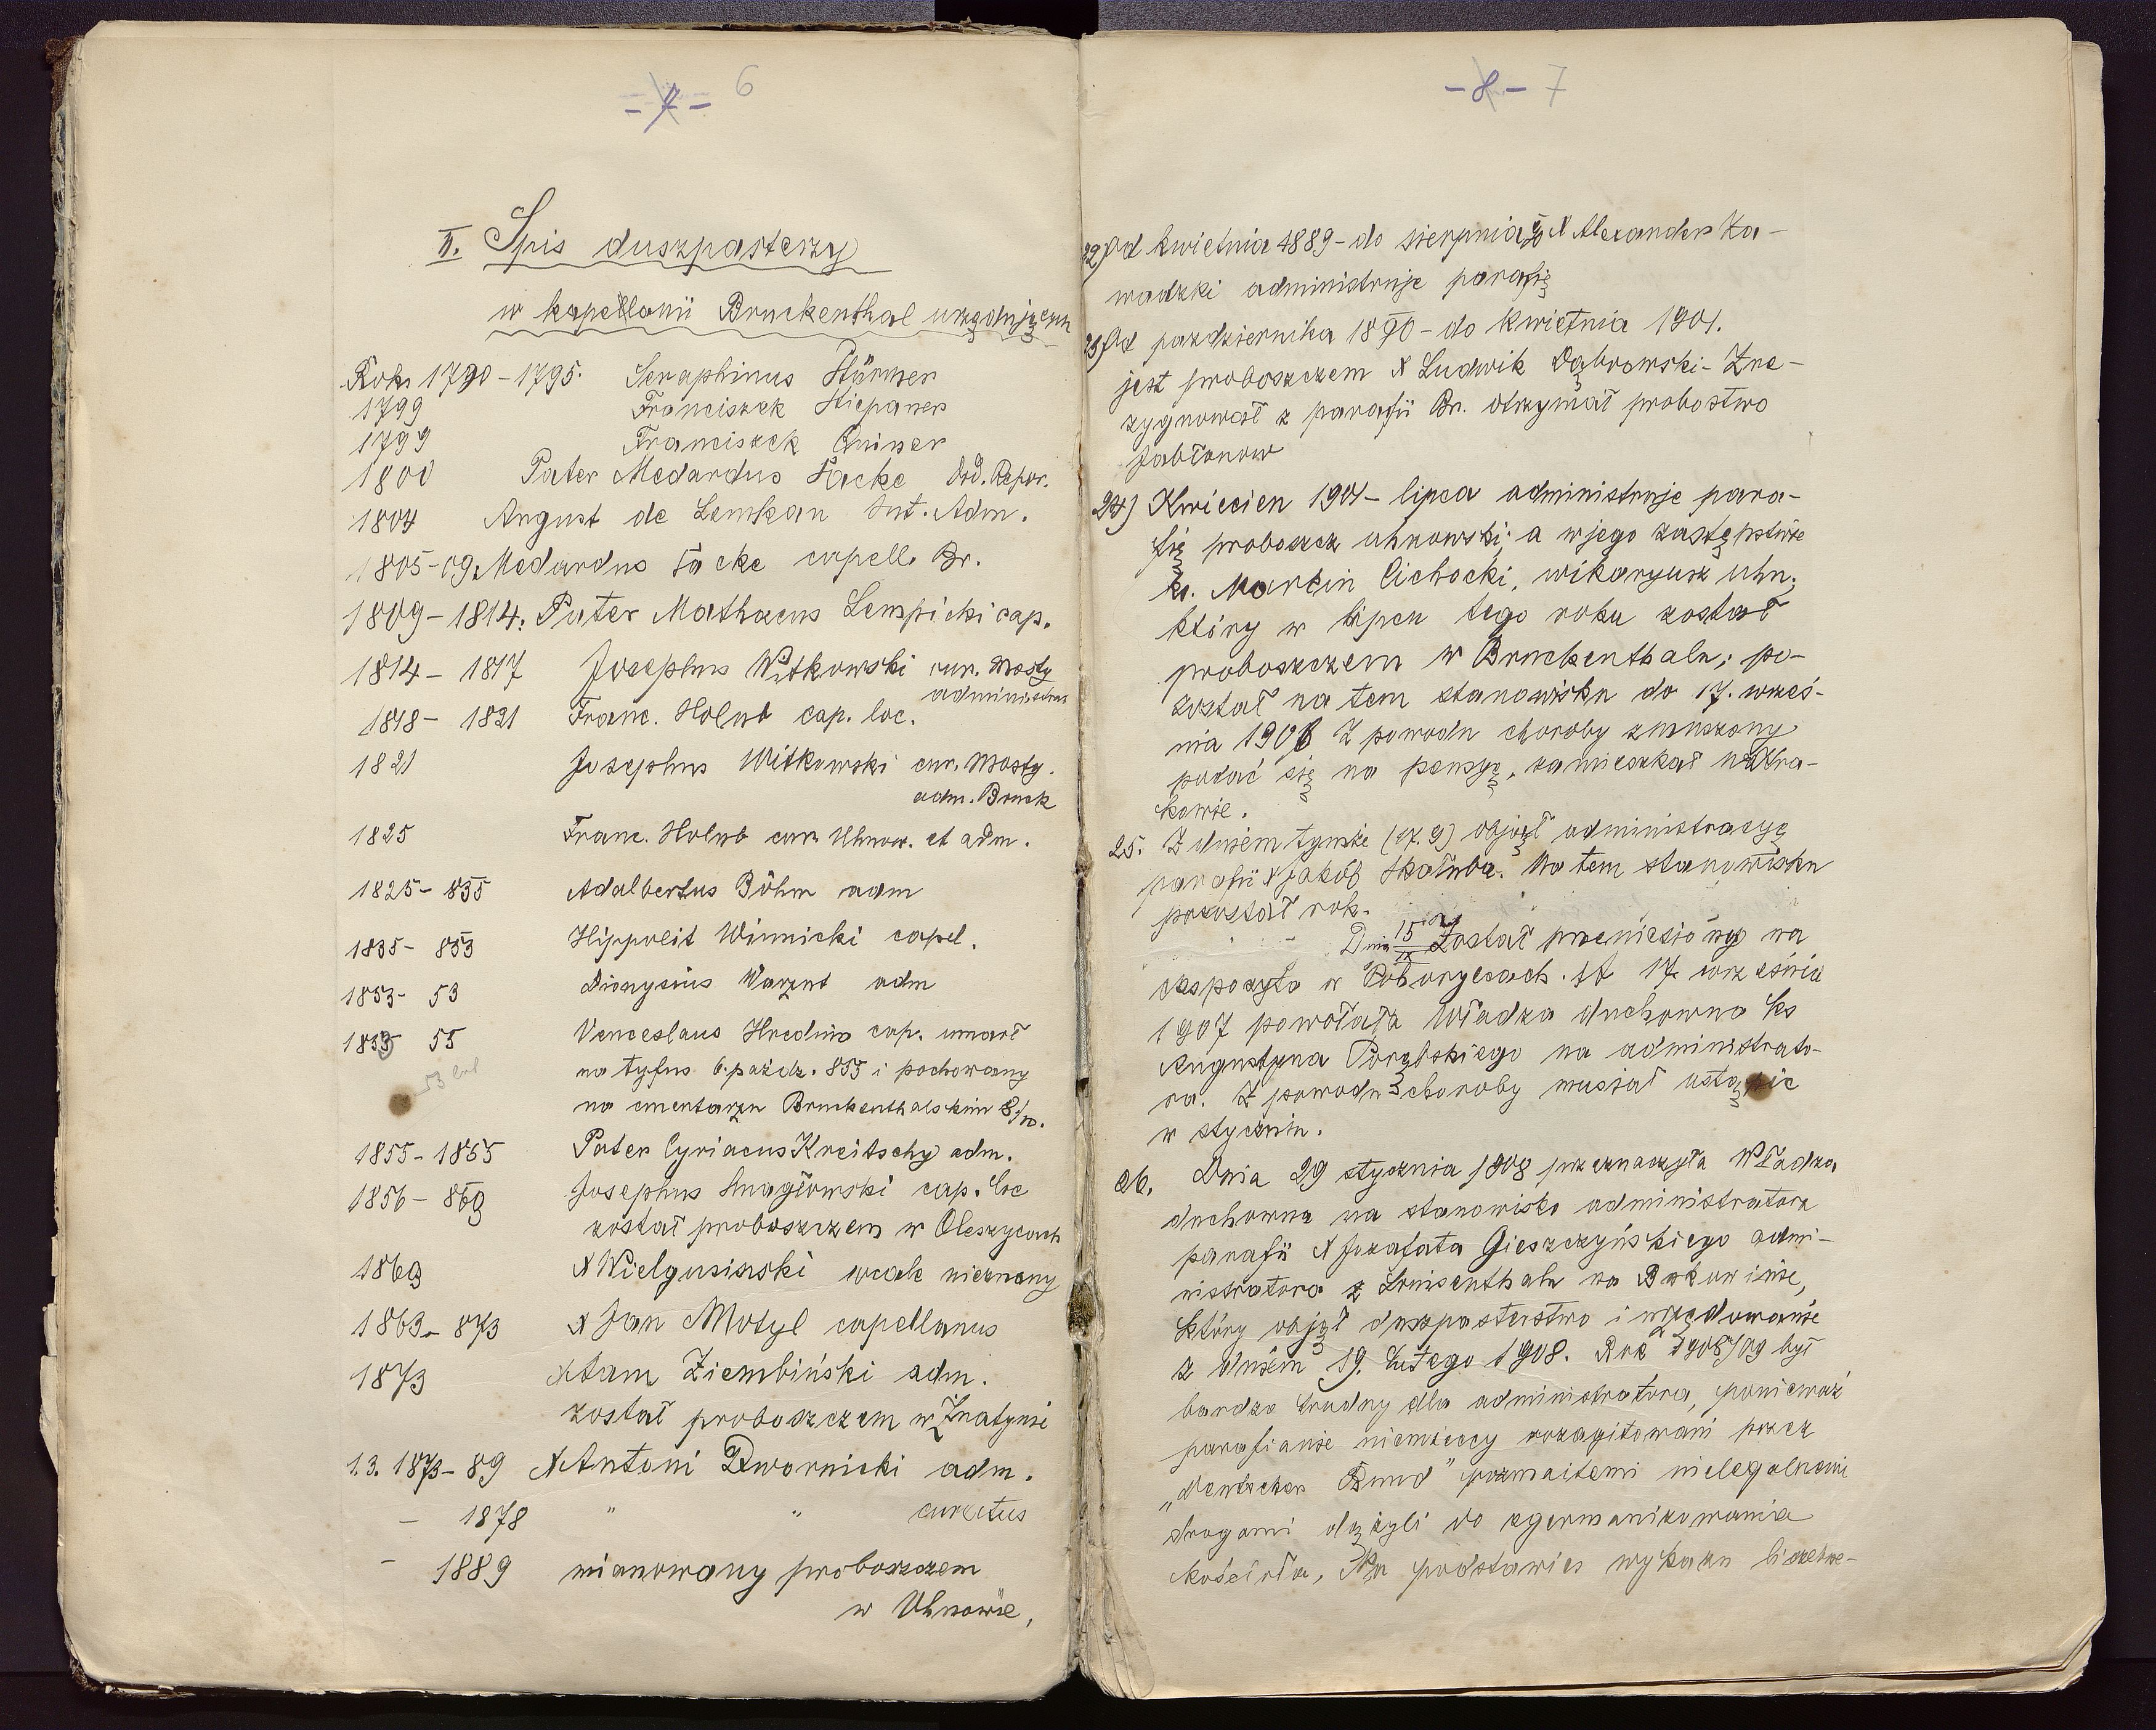 - 7 - 6
II. Spis duszpasterzy
w kapellanii Bruckenthal urzędujących
Rok 1790 - 1795. Seraphinus Stürmer
1799 Franciszek Stiepaner
1799 Franciszek
1800 Pater Medardus Fäcke Ord. Refor.
1804 August de Lemkan Int. Adm.
1805-09. Medardus Fäcke capell. Br.
1809 - 1814. Pater Mathaeus Lempicki cap.
1814 - 1817 Josephus Witkowski cur. Mosty
administrat
1818 - 1821 Franc. Holub cap. loc.
1821 Josephus Witkowski cur. Mosty.
adm. Bruck
1825 Franc. Holub cur. Uhnow. et adm.
1825 - 835 Adalbertus Böhm adm
1835 - 853 Hippolit Winnicki capel.
1853 - 53 Dionysius Warzut adm
1853 55 Venceslaus Hredina cap. umarł
na tyfus 6. paźdz. 855 i pochowany
53
na cmentarzu Bruckenthalskim 8/10.
1855 - 1855 Pater Cyriacus Kreitschy adm.
1856 - 869 Josephus Smagłowski cap. loc
został proboszczem w Oleszycach
1869 X Wielgusinski wcale nieznany
1869 - 873 X Jan Motyl capellanus
1873 Adam Ziembiński adm.
został proboszczem w Żnatyni
1.3. 1873 - 89 X Antoni Dwornicki adm.
- 1878 " " curatus
- 1889 mianowany proboszczem
w Uhnowie,
- 8 - 7
22) Od kwietnia 1889 - do sierpnia 90 X Alexander Za-
wadzki administruje parafię
23) Od pazdziernika 1890 - do kwietnia 1901.
jest proboszczem X Ludwik Dąbrowski - Zre-
zygnował z parafii Br. otrzymał probostwo
Jabłonow
24) Kwiecien 1901 - lipca administruje para-
fię proboszcz uhnowski; a w jego zastępstwie
ks. Marcin Cichocki, wikaryusz uhn.
który w lipcu tego roku został
proboszczem w Bruckenthalu; po-
został na tem stanowisku do 17. wrześ-
nia 1906 Z powodu choroby zmuszony
podać się na pensyę, zamieszkał w Kra-
kowie.
25. Z dniem tymże (17.9) objął administracyę
parafii X Jakób Skałuba. Na tem stanowisku
pozostał rok.
Dnia 15/IX 07 Został przeniesiony na
ekspozytę w Poturycach. Od 17. września
1907 powołała Władza duchowna ks
Augustyna Porębskiego na administrato-
ra. Z powodu choroby musiał ustąpić
w styczniu.
26. Dnia 29 stycznia 1908 przeznaczyła Władza
duchowna na stanowisko administratora
parafii X Jozafata Gieszczyńskiego admi-
nistratora z Louisenthalu na Bukowinie,
który objął duszpasterstwo i urzędowanie
z dniem 19. Lutego 1908. Rok 1908/09 był
bardzo trudny dla administratora, ponieważ
parafianie niemieccy rozagitowani przez
„Deutscher Bund" rozmaitemi nielegalnemi
drogami dążyli do zgermanizowania
kościoła, Na podstawie wykazu liczebne-